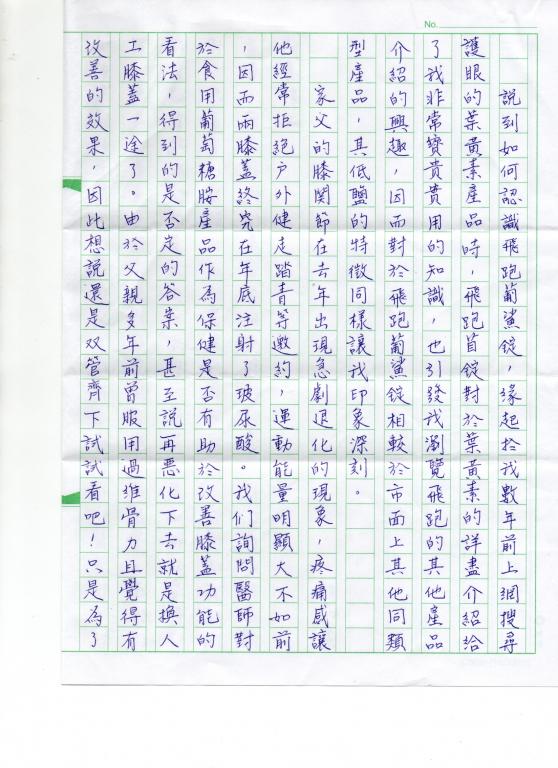 No.
說到如何認識飛跑葡鯊錠，緣起於我數年前上網搜尋
護眼的葉黃素產品時，飛跑首錠對於葉黃素的詳盡介紹給
了我非常寶貴貴用的知識，也引發我瀏覽飛跑的其他產品
介紹的興趣，因而對於飛跑葡鯊錠相較於市面上其他同類
型產品，其低鹽的特徵同樣讓我印象深刻。
家父的膝關節在去年出現急劇退化的現象，疼痛感讓
他經常拒絕戶外健走踏青等邀約，運動能量明顯大不如前
，因而兩膝蓋終究在年底注射了玻尿酸。我们詢問醫師對
於食用葡萄糖胺產品作為保健是否有助於改善膝蓋功能的
看法，得到的是否定的答案，甚至說再惡化下去就是換人
工膝蓋一途了。由於父親多年前曾服用過維骨力且覺得有
改善的效果，因此想說還是双管齊下試試看吧！只是為了